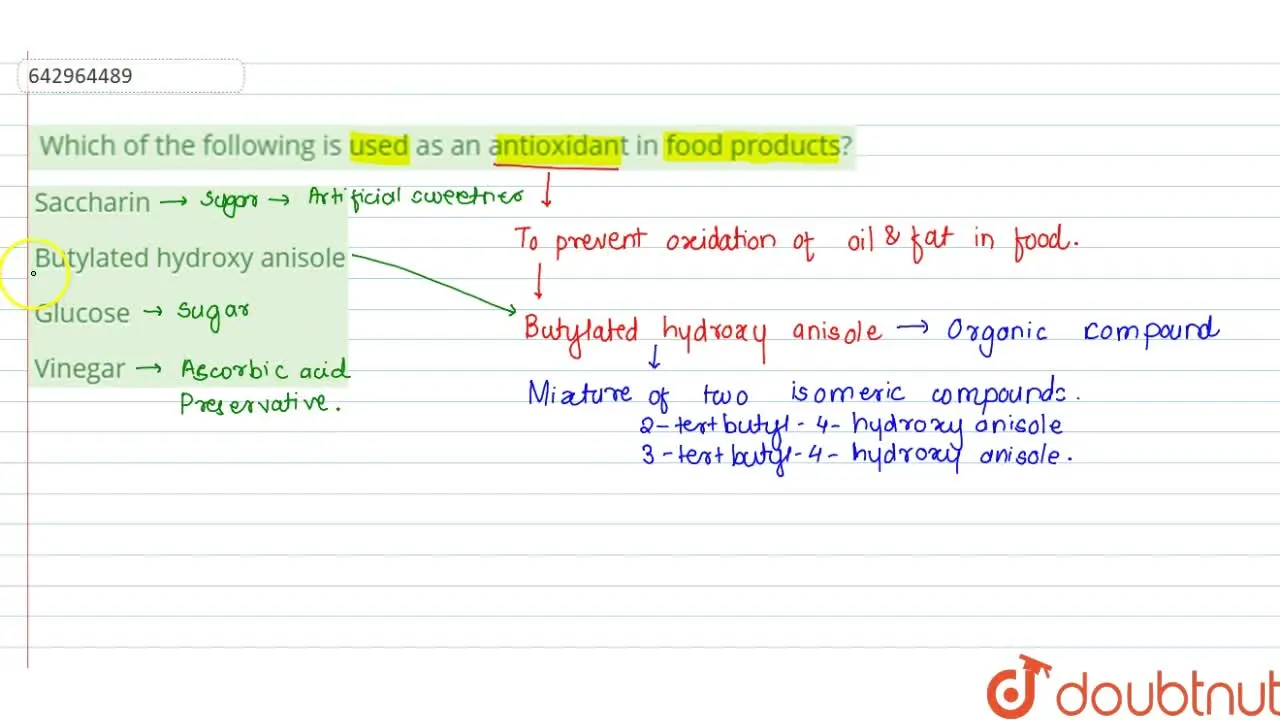 642964489
Which of the following is used as an antioxidant in food products?
Saccharin → Sugar → Artificial sweetner
To prevent oxidation of oil & fat in food.
Butylated hydroxy anisole
Glucose → Sugar
Butylated hydroxy anisole → Organic compound
Vinegar → Ascorbic acid
Preservative.
Mixture of two isomeric compounds.
2-tert butyl-4-hydroxy anisole
3-tert butyl-4-hydroxy anisole.
doubtnut